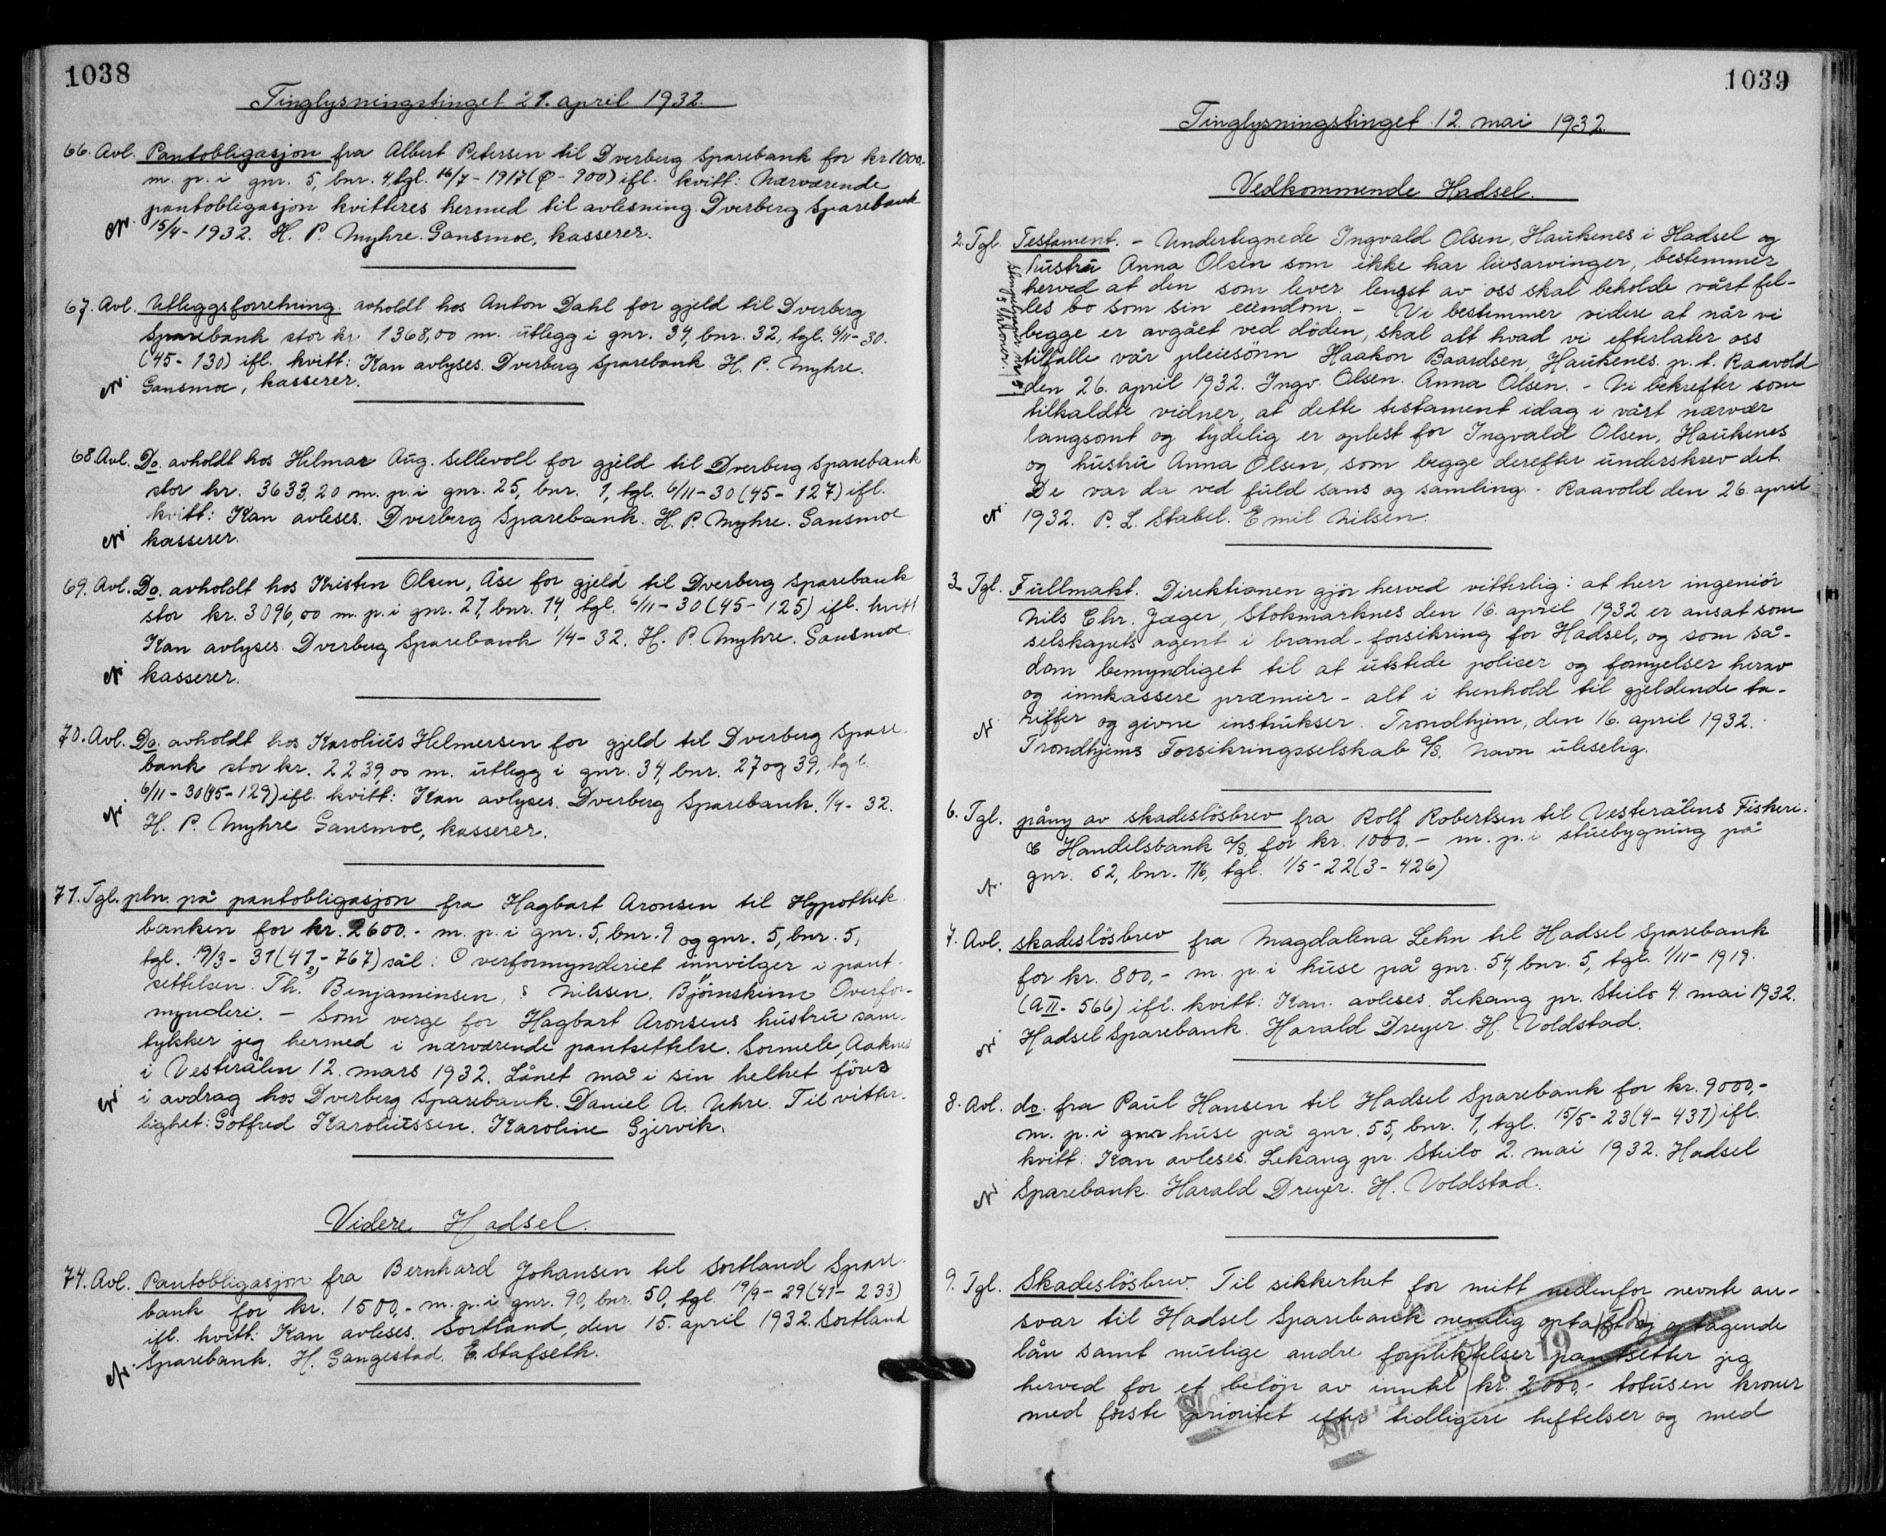 1038
Tinglysningstinget 21. april 1932.
66. Avl. Pantobligasjon fra Albert Petersen til Dverberg Sparebank for kr 1000.-
m. p. i gnr. 5, bnr. 4, tgl. 16/7 - 1917 ( - 900) ifl. kvitt: Nærværende
pantobligasjon kvitteres hermed til avlesning. Dverberg Sparebank
15/4 - 1932. H. P. Myhre. Gansmoe, kasserer.
67. Avl. Utleggsforretning. avholdt hos Anton Dahl for gjeld til Dverberg
Sparebank stor kr. 1368,00 m. utlegg i gnr. 34, bnr. 32, tgl. 6/11 - 30.
(45 - 130) ifl. kvitt: Kan avlyses. Dverberg Sparebank H. P. Myhre.
Gansmoe, kasserer.
68. Avl. Do. avholdt hos Hilmar Aug. Sellevoll for gjeld til Dverberg Sparebank
stor kr. 3633,20 m. p. i gnr. 25, bnr. 1, tgl. 6/11 - 30 (45 - 127) ifl.
kvitt: Kan avleses. Dverberg Sparebank. H. P. Myhre. Gansmoe
kasserer.
69. Avl. Do. avholdt hos Kristen Olsen, Åse for gjeld til Dverberg Sparebank
stor kr. 3096,00 m. p. i gnr. 27, bnr. 14, tgl. 6/11 - 30 (45 - 125) ifl. kvitt
Kan avlyses. Dverberg Sparebank 1/4 - 32. H. P. Myhre. Gansmoe.
kasserer.
70. Avl. Do. avholdt hos Karolius Helmersen for gjeld til Dverberg Spare-
bank stor kr. 2239,00 m. utlegg i gnr. 34, bnr. 27 og 39, tgl.
6/11 - 30 (45 - 129) ifl. kvitt: Kan avlyses. Dverberg Sparebank. 1/4 - 32.
H. P. Myhre Gansmoe, kasserer.
71. Tgl. ptn. på pantobligasjon fra Hagbart Aronsen til Hypothek
banken for kr. 2600.- m. p. i gnr. 5, bnr. 9 og gnr. 5, bnr. 5,
tgl. 19/3 - 31 (47 - 767) sål: Overformynderiet innvilger i pant-
settelsen. Th. Benjaminsen, Nilssen. Bjørnskinn Overfor-
mynderi. - Som verge for Hagbart Aronsens hustru sam-
tykker jeg hermed i nærværende pantsettelse. Sormele, Aaknes
i Vesterålen 12. mars 1932. Lånet må i sin helhet føres
i avdrag hos Dverberg Sparebank. Daniel A. Uhre. Til vitter-
lighet: Gotfred Karoliussen. Karoline Gjervik.
Videre Hadsel.
74. Avl. Pantobligasjon fra Bernhard Johansen til Sortland Spare-
bank for kr. 1500,- m. p. i gnr. 90, bnr. 50, tgl. 19/9 - 29 (41 - 233)
ifl. kvitt: Kan avleses. Sortland, den 15. april 1932. Sortland
Sparebank. H. Gangestad. E. Stafseth.
1039
Tinglysningstinget 12. mai 1932.
Vedkommende Hadsel.
2. Tgl. Testament. - Undertegnede Ingvald Olsen, Haukenes i Hadsel og
hustru Anna Olsen som ikke har livsarvinger, bestemmer
herved at den som lever lengst av oss skal beholde vårt fel-
les bo som sin eiendom. - Vi bestemmer videre at når vi
begge er avgået ved döden, skal alt hvad vi efterlater oss
tilfalle vår pleiesönn Haakon Baardsen, Haukenes. p. t. Raavold
den 26. april 1932. Ingv. Olsen. Anna Olsen. - Vi bekrefter som
tilkaldte vidner, at dette testament idag i vårt nærvær
langsomt og tydelig er oplest for Ingvald Olsen, Haukenes
og hustru Anna Olsen, som begge derefter underskrev det.
De var da ved fuld sans og samling. - Raavold den 26. april
1932. P. L. Stabel. Emil Nilsen.
3. Tgl. Fullmakt. Direktionen gjör herved vitterlig: at herr ingeniör
Nils Chr. Jæger, Stokmarknes den 16. april 1932 er ansat som
selskapets agent i brand-forsikring for Hadsel, og som så-
dan bemyndiget til at utstede poliser og fornyelser herav
og innkassere præmier - alt i henhold til gjeldende ta-
riffer og givne instrukser. Trondhjem, den 16. april 1932.
Trondhjems Forsikringsselskab A/S. Navn uleselig.
6. Tgl. påny av skadeslösbrev fra Rolf Robertsen til Vesterålens Fiskeri-
& Handelsbank A/S for kr. 1000.- m. p. i stuebygning på
gnr. 52, bnr. 116, tgl. 1/5 - 22 (3 - 426)
7. Avl. skadeslösbrev fra Magdalena Lehn til Hadsel Sparebank
for kr. 800,- m. p. i huse på gnr. 54, bnr. 5, tgl. 1/11 - 1919.
(A II - 566) ifl. kvitt: Kan avleses. Lekang pr. Steilo 4. mai 1932.
Hadsel Sparebank. Harald Dreyer. H. Voldstad.
8. Avl. do. fra Paul Hansen til Hadsel Sparebank for kr. 9000-
m. p. i gnr huse på gnr. 55, bnr. 1, tgl. 15/5 - 23 (4 - 437) ifl.
kvitt: Kan avleses. Lekang pr. Steilo 2. mai 1932. Hadsel
Sparebank. Harald Dreyer. H. Voldstad.
9. Tgl. Skadeslösbrev. Til sikkerhet for mitt nedenfor nevnte an-
svar til Hadsel Sparebank nemlig optatt og optagende
lån samt mulige andre forpliktelser pantsetter jeg
herved for et belöp av inntil kr. 2000,- totusen kroner
med förste prioritet efter tidligere heftelser og med